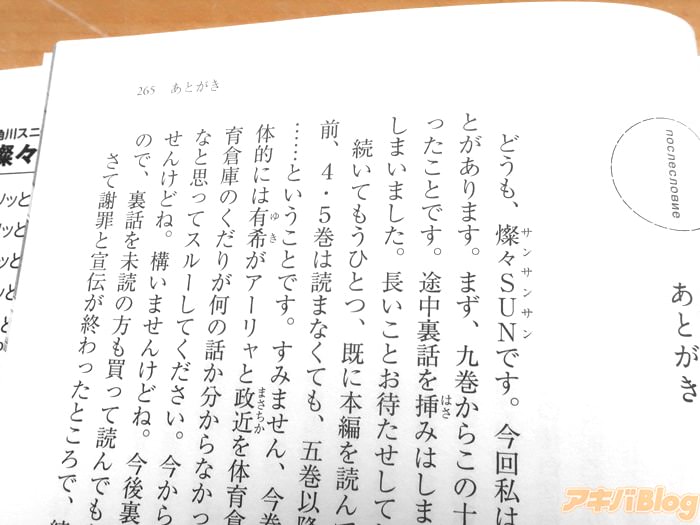 265 あとがき
послесловие
あとがき
どうも、燦々SUNです。今回私は
サンサンサン
とがあります。まず、九巻からこの十
ったことです。途中裏話を挿みはしま
はさ
しまいました。長いことお待たせして
続いてもうひとつ、既に本編を読んで
前、4・5巻は読まなくても、五巻以降
……ということです。すみません、今巻
体的には有希がアーリャと政近を体育倉
ゆき
まさちか
育倉庫のくだりが何の話か分からなかっ
なと思ってスルーしてください。今から
せんけどね。構いませんけどね。今後裏
ので、裏話を未読の方も買って読んでも
さて謝罪と宣伝が終わったところで、
角川スニ
燦々
アキバBlog